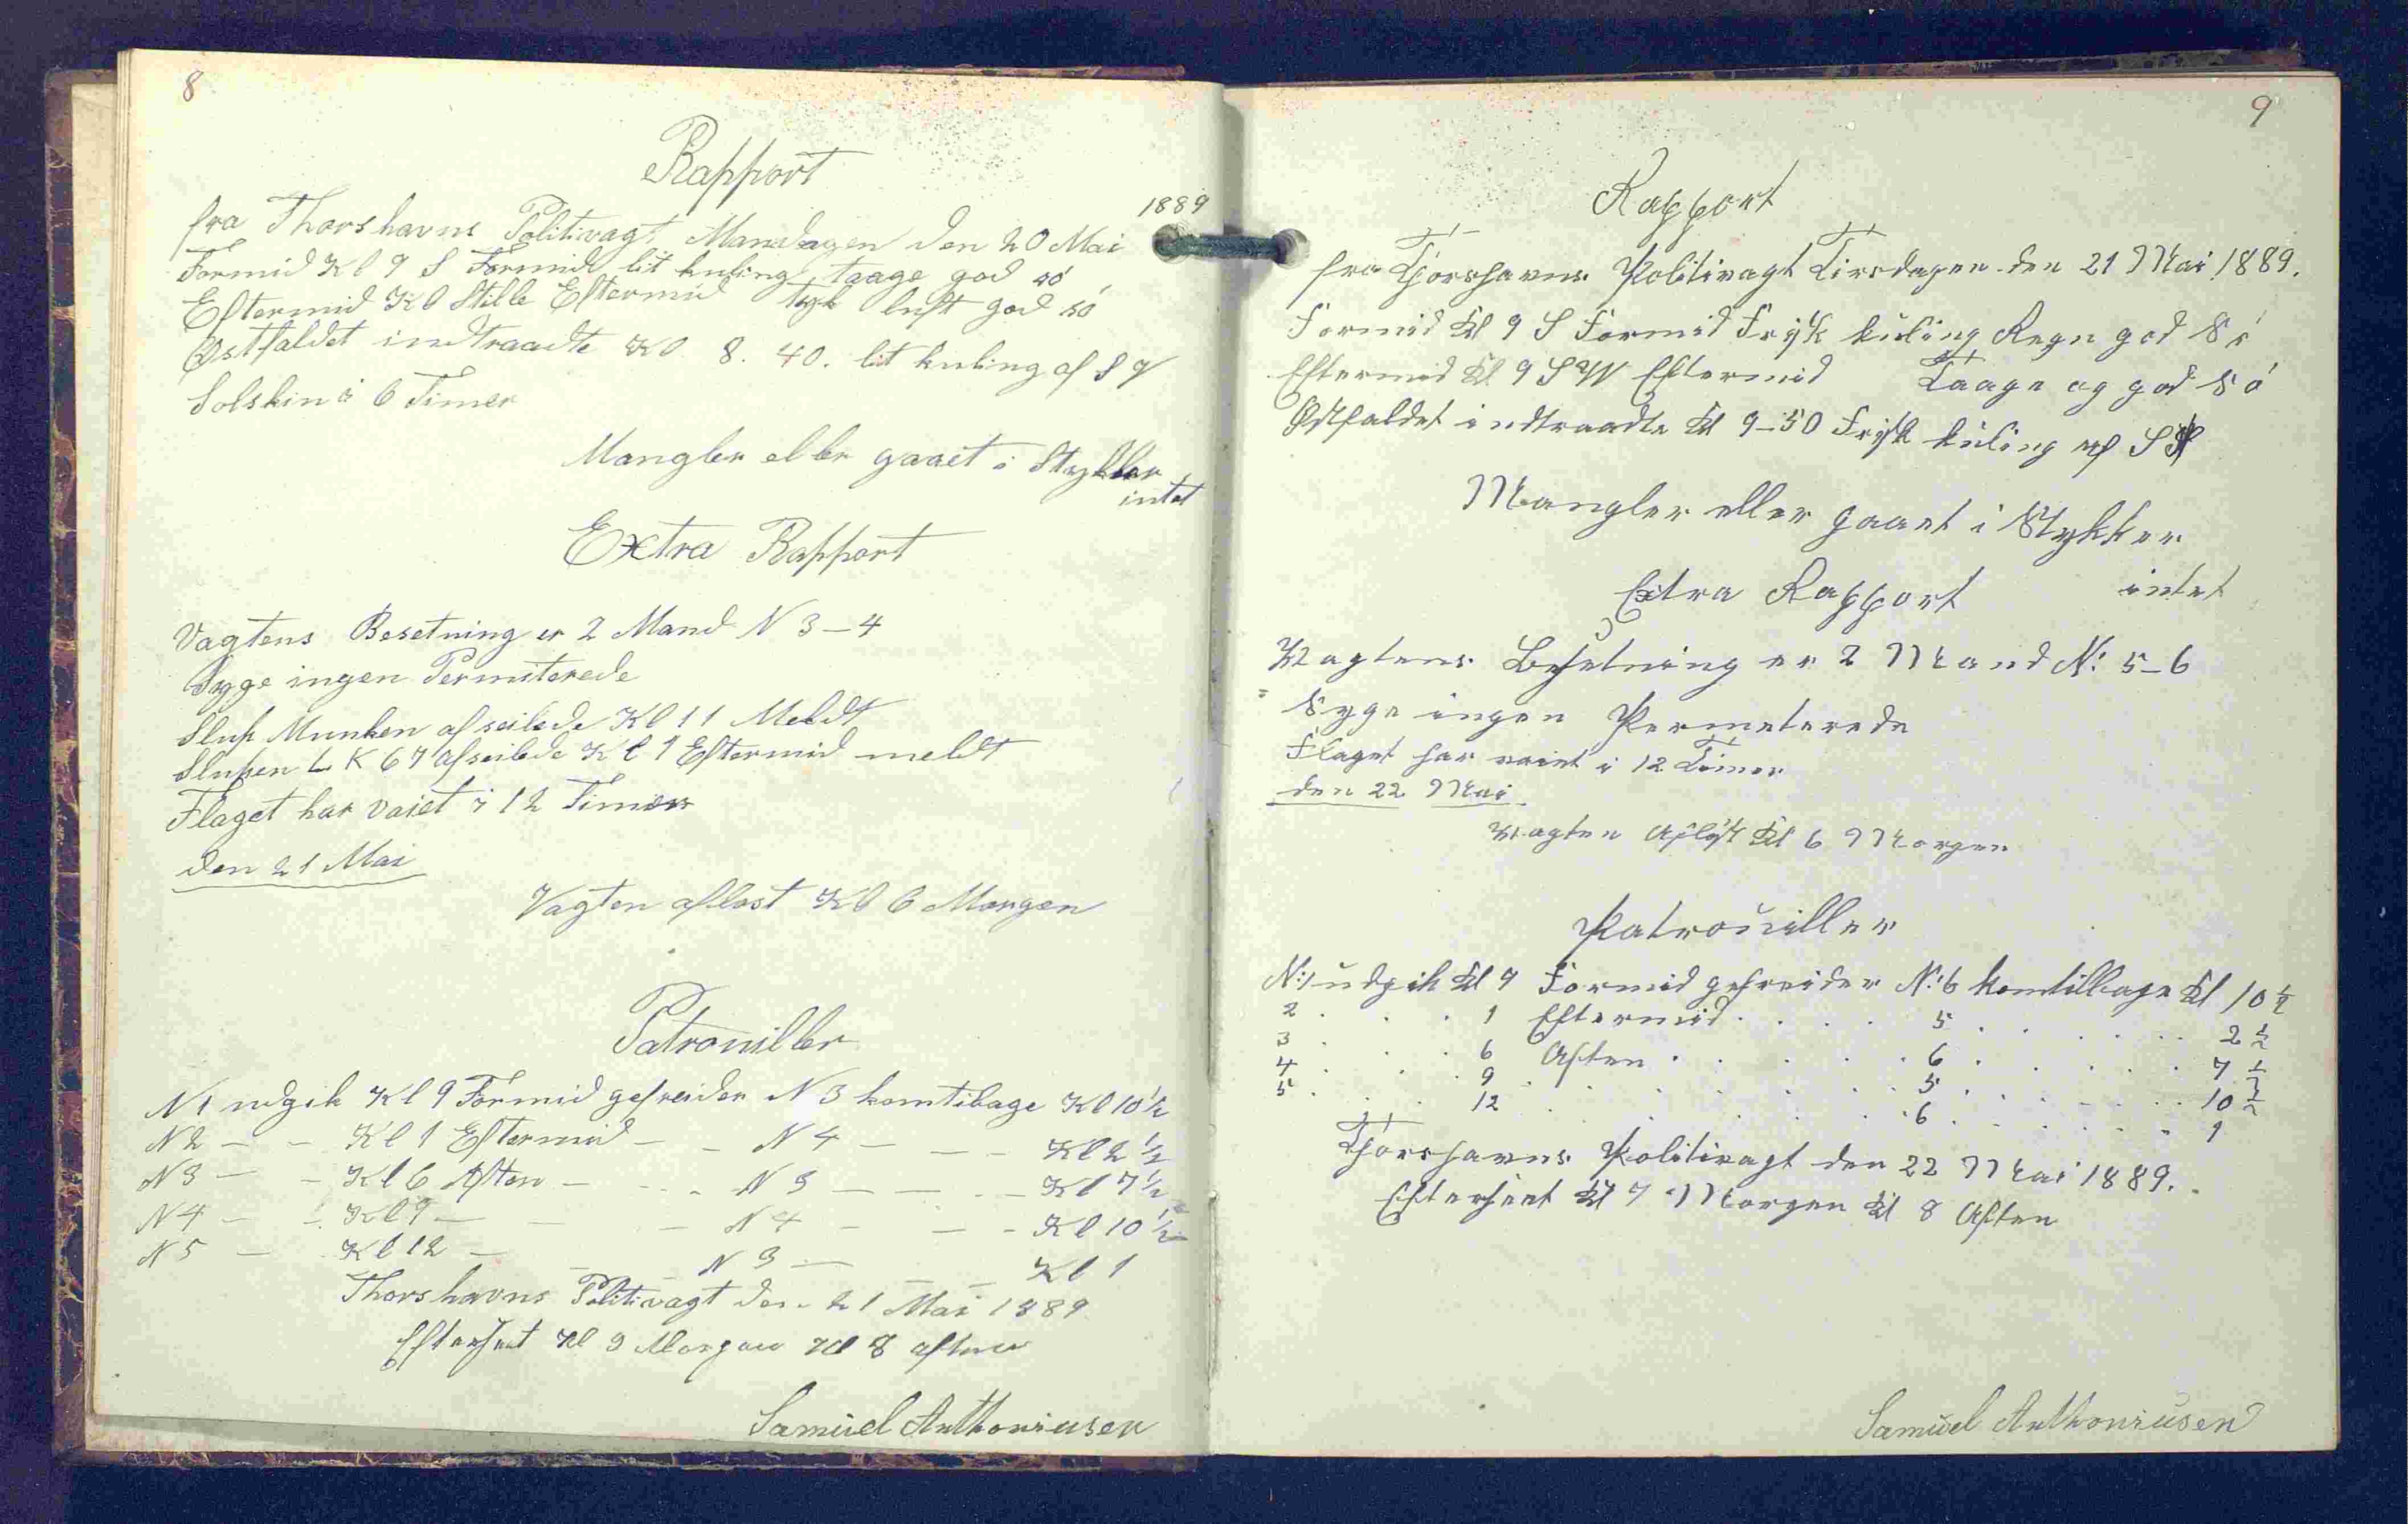 8
Rapport
1889
fra Thorshavns Politivagt Mandagen den 20 Mai
Formid Kl 9 S Formid lit kuling taage god sö
Eftermid Kl Stille Eftermid tyk luft god sö
Östfaldet indtraadte Kl 8. 40. lit kuling af S
Solskin i 6 Timer
Mangler eller gaaet i Stykker
intet
Extra Rapport
Vagtens Besetning er 2 Mand N 3-4
Syge ingen Permiterede
Slup Munken afseilede Kl 11 Meldt
Slupen L K 67 afseilede Kl 1 Eftermid meldt
Flaget har vaiet i 12 Timer
den 21 Mai
Vagten aflöst Kl 6 Morgen
Patrouiller
N 1 udgik Kl 9 Formid gefreider N 3 komtibage Kl 10 1/2
N 2 - - Kl 1 Eftermid - - N 4 - - - Kl 2 1/2
N 3 - - Kl 6 Aften - - - N 3 - - - Kl 7 1/2
N 4 - - Kl 9 - - - N 4 - - - Kl 10 1/2
N 5 - Kl 12 - - - N 3 - - - Kl 1
Thorshavns Politivagt den 21 Mai 1889
Efterseet Kl 9 Morgen Kl 8 aften
Samúel Anthoniusen
9
Rapport
fra Thorshavns Politivagt Tirsdagen den 21 Mai 1889.
Formid Kl 9 S Formid Frisk kúling Regn god Sö
Eftermid Kl 9 SW Eftermid Taage og god Sö
Östfaldet indtraadte Kl 9-50 Frisk kúling af S
Mangler eller gaaet i Stykker
intet
Extra Rapport
Vagtens Besetning er 2 Mand N: 5-6
Syge ingen Permeterede
Flaget har vaiet i 12 Timer
den 22 Mai
Vagten Aflöst Kl 6 Morgen
Patroúiller
N: 1 údgik Kl 9 Formid gefreider N: 6 komtilbage Kl 10 1/2
2 . . . 1 Eftermid . . . . 5 . . . . . . 2 1/2
3 . . . 6 Aften . . . . . 6 . . . . . . 7 1/2
4 . . . 9 . . . . . . 5 . . . . . . 10 1/2
5 . . . 12 . . . . . . 6 . . . . . . 1
Thorshavns Politivagt den 22 Mai 1889.
Efterseet Kl 7 Morgen Kl 8 Aften
Samúel Anthoniúsen